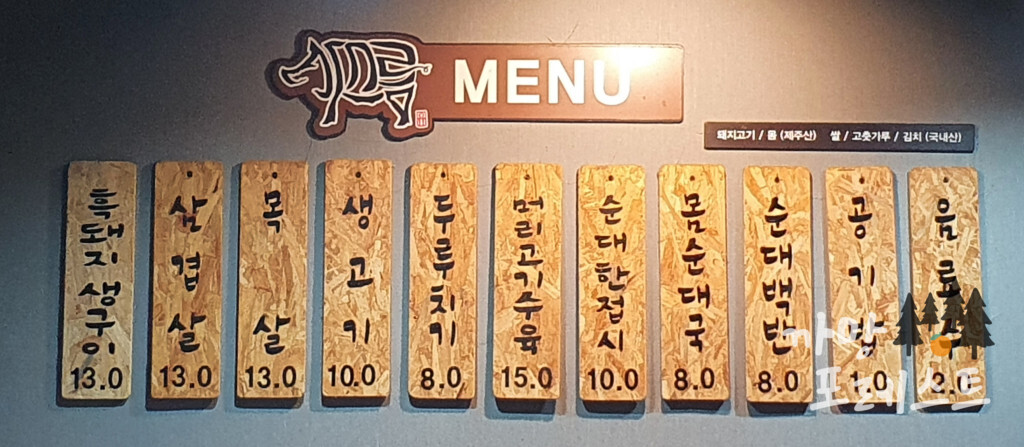 MENU
돼지고기 / 몸 (제주산) 쌀 / 고춧가루 / 김치 (국내산)
흑돼지생구이
13.0
삼겹살
13.0
목살
13.0
생고기
10.0
두루치기
8.0
머리고기수육
15.0
순대한접시
10.0
몸순대국
8.0
순대백반
8.0
공기밥
1.0
음료수
2.0
가망
포레스트